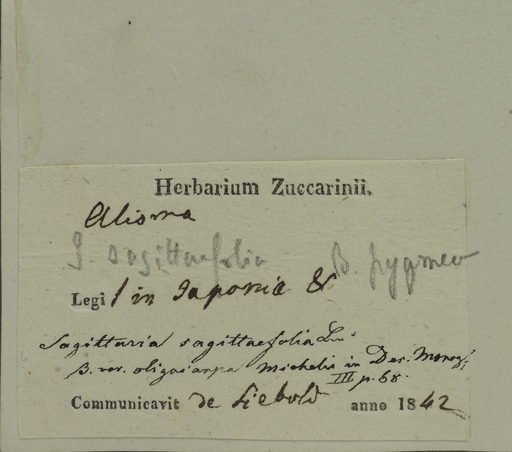 Herbarium Zuccarinii.
Alisma
S. sagittaefolia B. pygmea
Legi in Japonia &
Sagittaria sagittaefolia Lin
β. var. oligocarpa Micheli in Dec. Monog.
III p. 68
Communicavit de Siebold anno 1842